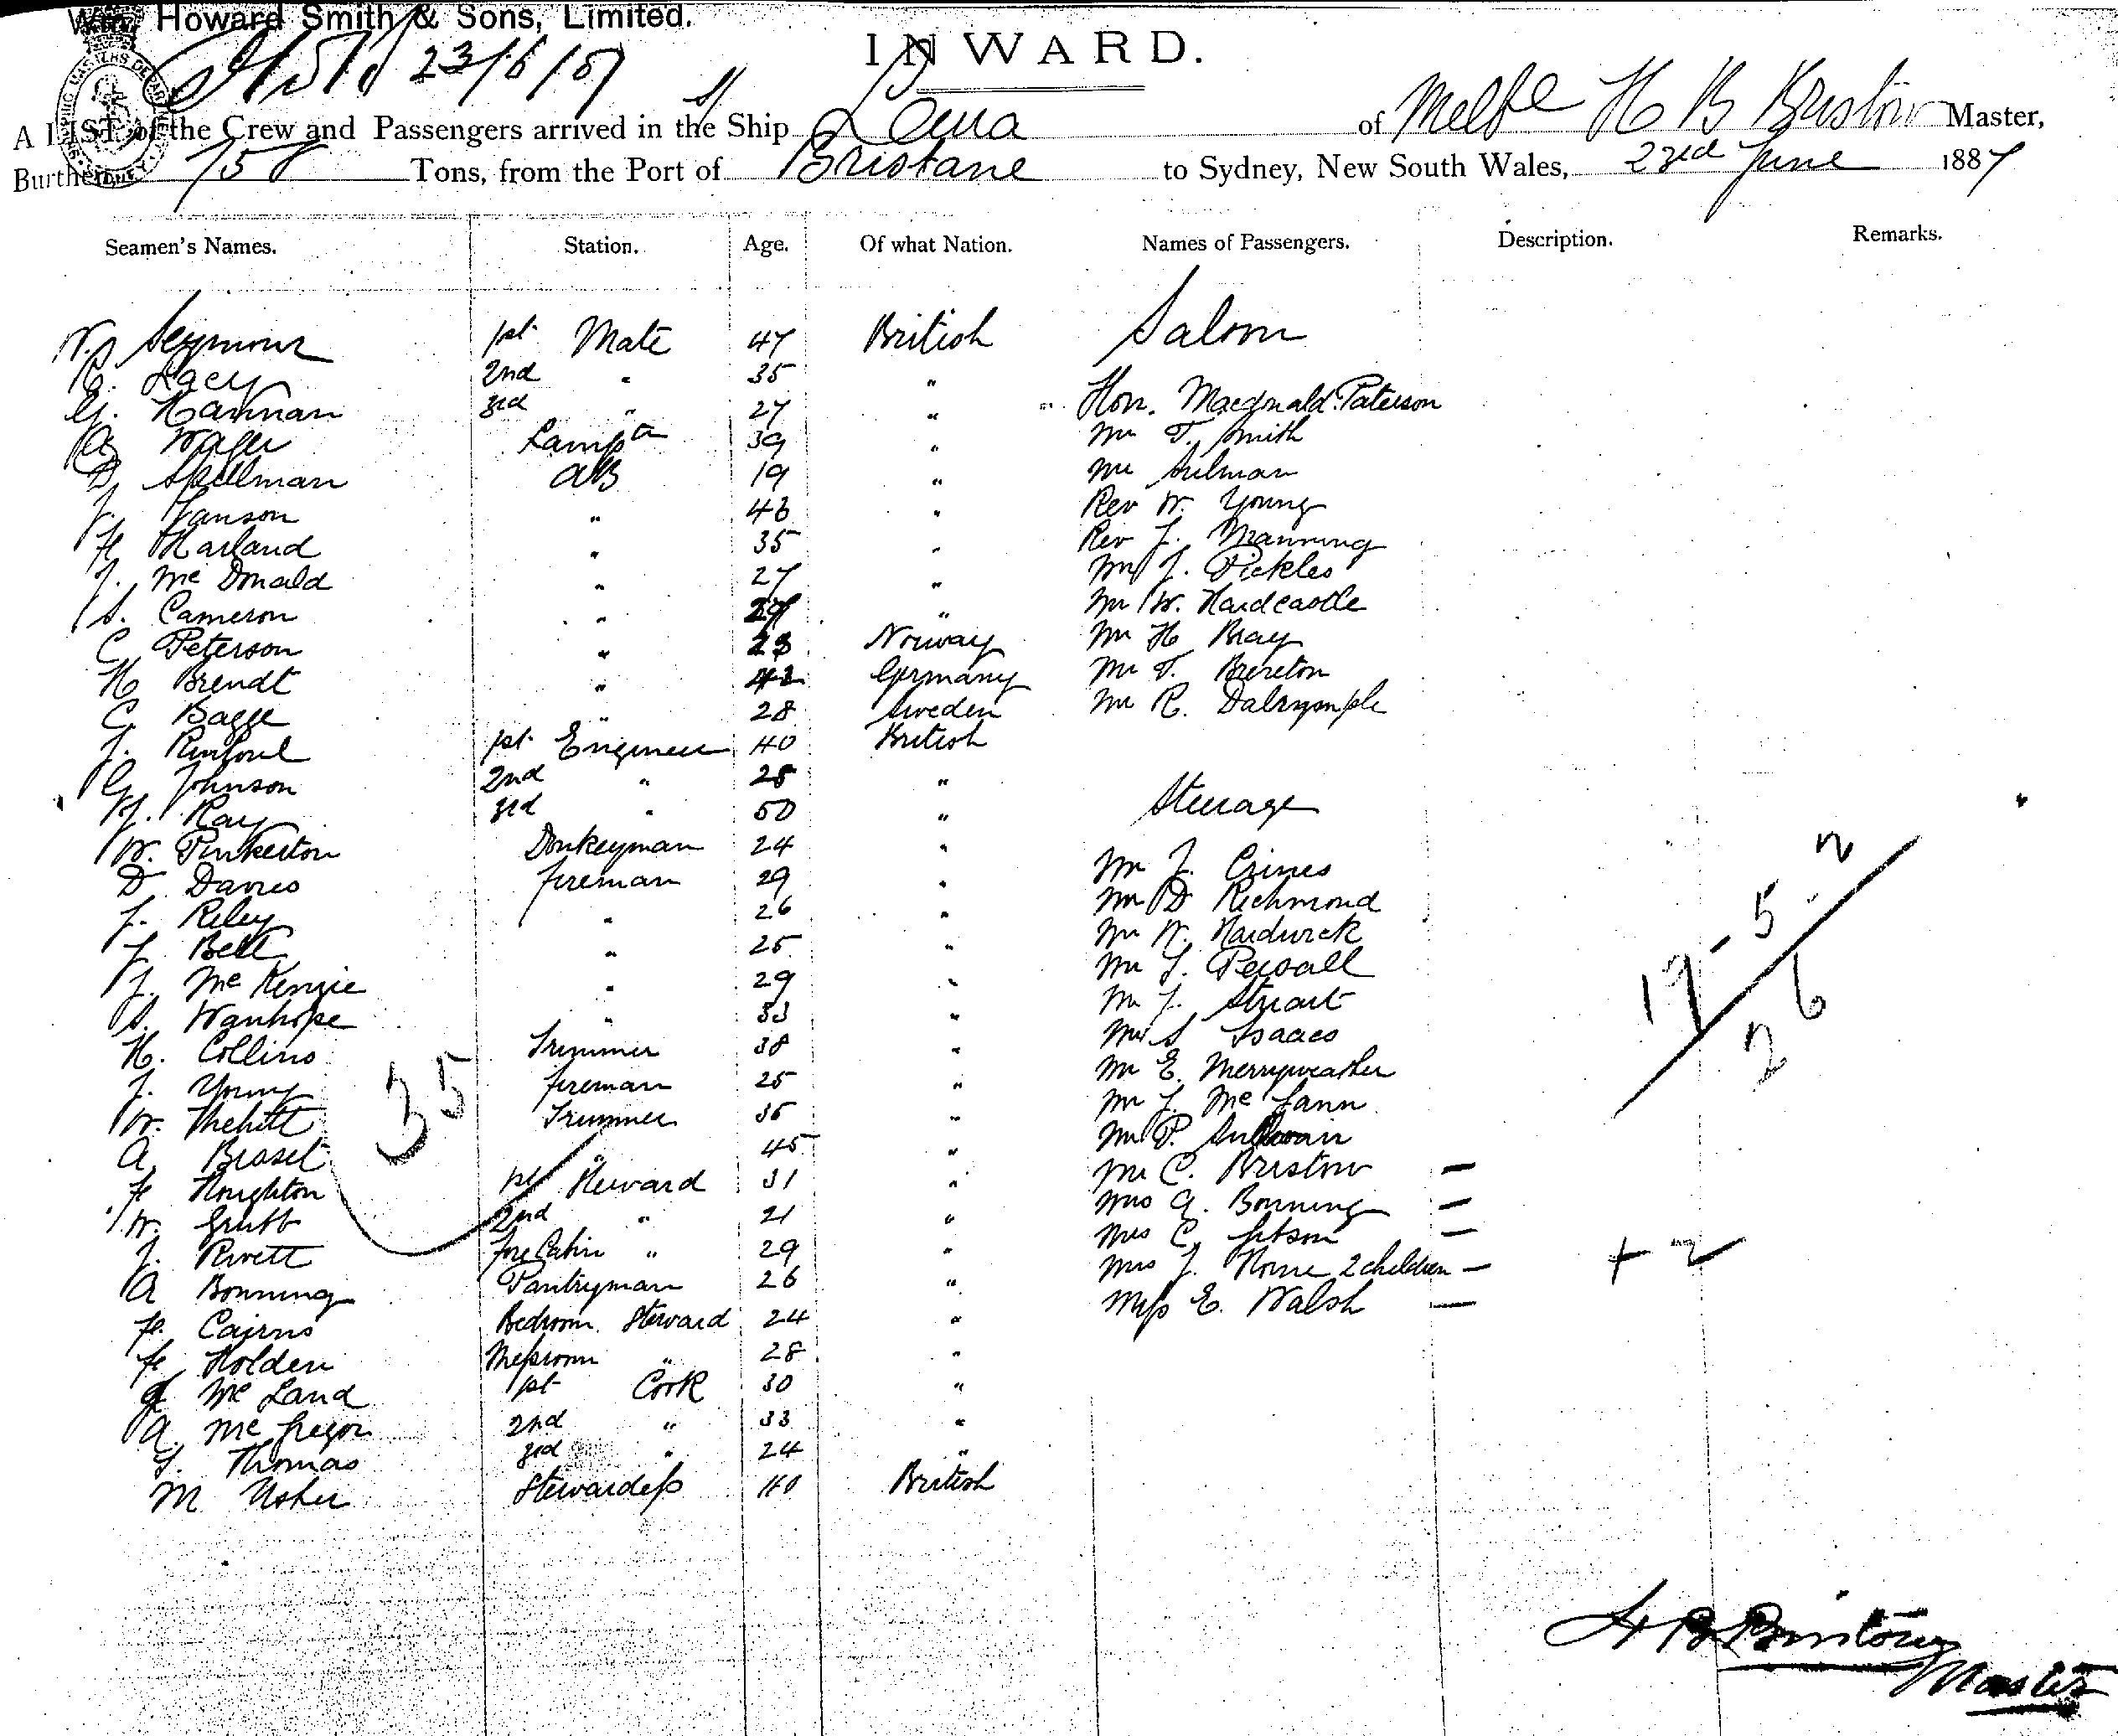 Wm. Howard Smith & Sons, Limited.
23/6/87
INWARD.
A LIST of the Crew and Passengers arrived in the Ship of Melbe H B Bristow Master,
Burthen 758 Tons, from the Port of Brisbane to Sydney, New South Wales, 23rd June 1887
Seamen's Names. Station. Age. Of what Nation. Names of Passengers. Description. Remarks.
W. Seymour 1st Mate 47 British Saloon
R. Lacey 2nd " 35 "
G. Hannan 3rd " 27 " Hon. Macdonald Paterson
A Wager Lamp tr 39 " Mr T. Smith
D. Spillman AB 19 " Mr Sulman
J. Hanson " 46 " Rev W. Young
F. Harland " 35 " Rev J. Manning
J. Mc Donald " 27 " Mr J. Pickles
S. Cameron " " Mr W. Hardcastle
C. Peterson " 23 Norway Mr H Bray
H Brendt " 42 Germany Mr T. Brereton
C. Bagge " 28 Sweden Mr R. Dalrymple
J. Renfoul 1st Engineer 40 British
G. Johnson 2nd " 28 "
Ray 3rd " 50 " Steerage
W. Pinkerton Donkeyman 24 " Mr J. Crines
D. Davies fireman 29 " Mr D Richmond
J. Riley " 26 " Mr W. Hardwick
J. Bell " 25 " Mr J. Persall
J. Mc Kenzie " 29 " Mr J. Stuart
S. Wanhope " 33 " Mr S Isaacs
H. Collins Trimmer 38 " Mr E. Merryweather
J. Young fireman 25 " Mr J. Mc Cann
W. Thehitt Trimmer 36 " Mr P. Sullivan
A. Brasel " 45 " Mr C. Bristow —
F. Houghton 1st Steward 31 " Mrs A. Bonning —
W. Grubb 2nd " 21 " Mrs C. Gibson —
J. Rivett Fore Cabin " 29 " Mrs J. Horne 2 children —
A Bonning Pantryman 26 " Miss E. Walsh —
F. Cairns Bedroom Steward 24 "
F. Holden Messroom " 28 "
Mc Land 1st Cook 30 "
A. Mc Gregor 2nd " 33 "
J. Thomas 3rd " 24 "
M Usher Stewardess 40 British
35
17 - 5 . 2
26
+ 2
H B Bristow
Master